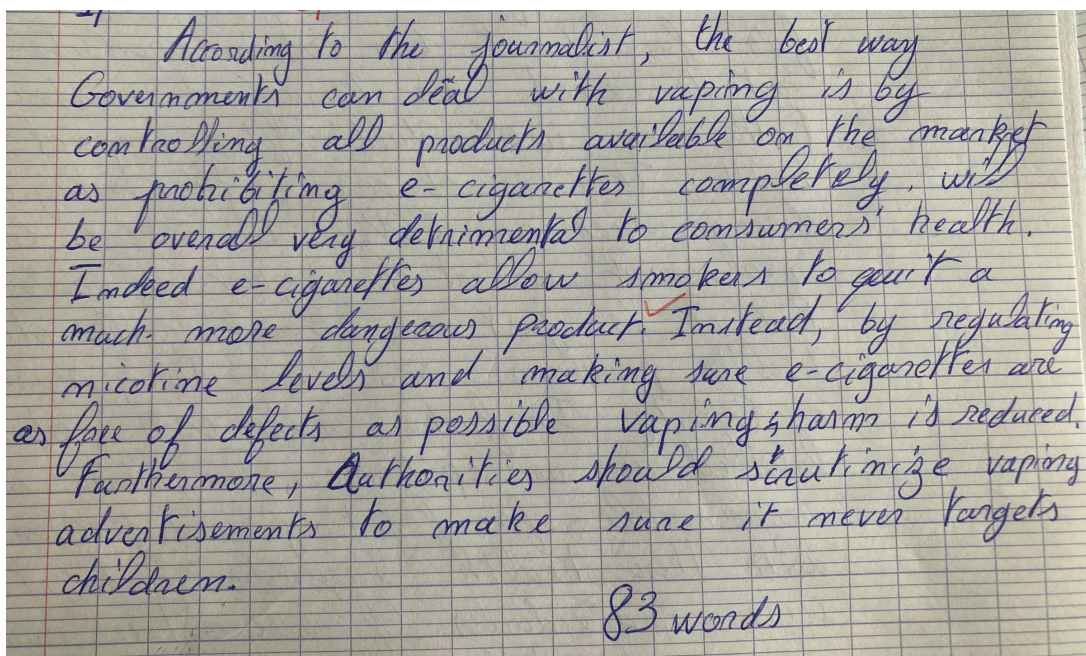 According to the journalist, the best way
Governments can deal with vaping is by
controlling all products available on the market
as prohibiting e-cigarettes completely, will
be overall very detrimental to consumers' health.
Indeed e-cigarettes allow smokers to quit a
much more dangerous product. Instead, by regulating
nicotine levels and making sure e-cigarettes are
as free of defects as possible vaping's harm is reduced.
Furthermore, Authorities should scrutinize vaping
advertisements to make sure it never targets
children.
83 words